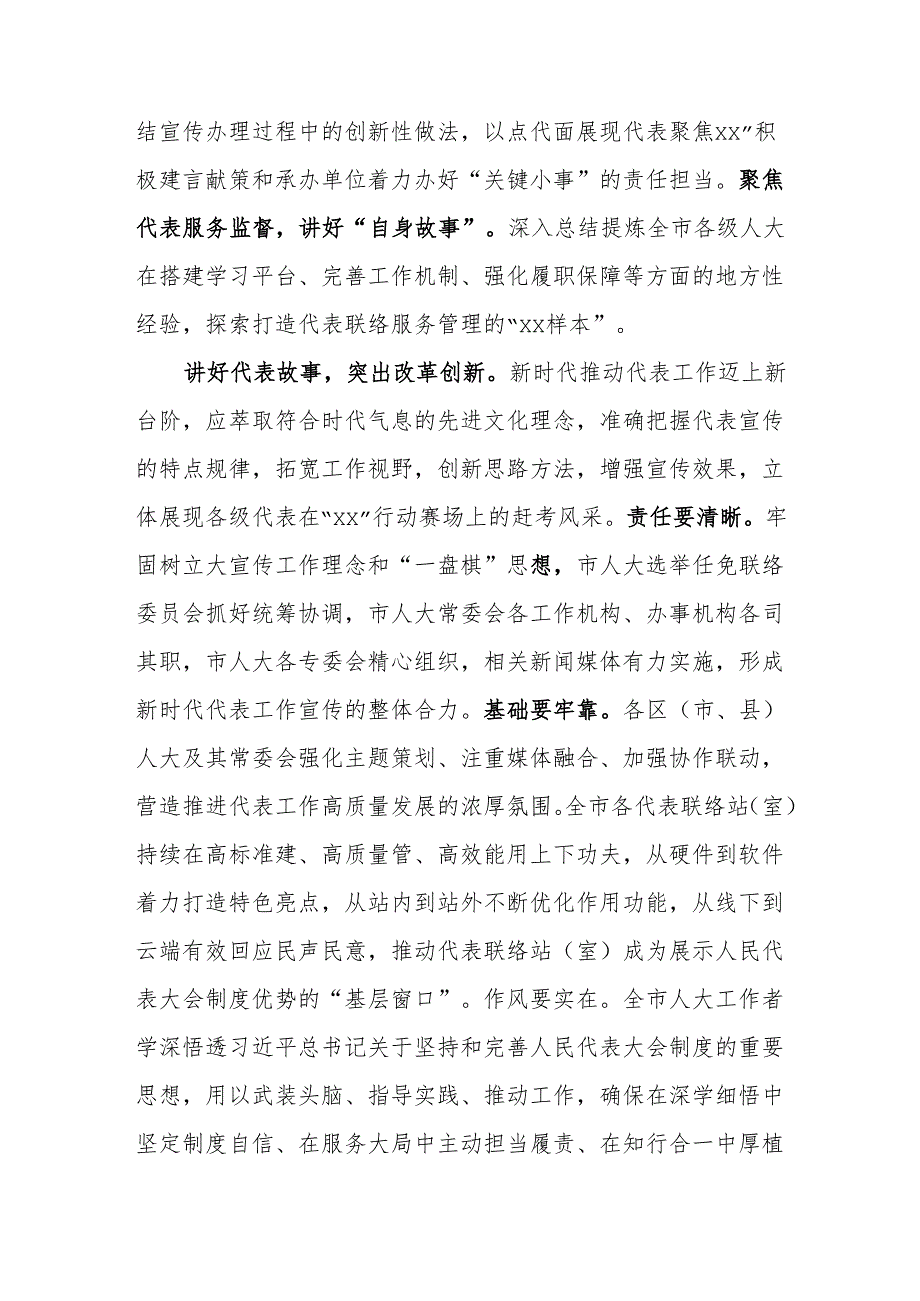 结宣传办理过程中的创新性做法，以点代面展现代表聚焦XX”积
极建言献策和承办单位着力办好“关键小事”的责任担当。聚焦
代表服务监督，讲好“自身故事”。深入总结提炼全市各级人大
在搭建学习平台、完善工作机制、强化履职保障等方面的地方性
经验，探索打造代表联络服务管理的“XX样本”。
讲好代表故事，突出改革创新。新时代推动代表工作迈上新
台阶，应萃取符合时代气息的先进文化理念，准确把握代表宣传
的特点规律，拓宽工作视野，创新思路方法，增强宣传效果，立
体展现各级代表在“XX”行动赛场上的赶考风采。责任要清晰。牢
固树立大宣传工作理念和“一盘棋”思想，市人大选举任免联络
委员会抓好统筹协调，市人大常委会各工作机构、办事机构各司
其职，市人大各专委会精心组织，相关新闻媒体有力实施，形成
新时代代表工作宣传的整体合力。基础要牢靠。各区（市、县）
人大及其常委会强化主题策划、注重媒体融合、加强协作联动，
营造推进代表工作高质量发展的浓厚氛围。全市各代表联络站（室）
持续在高标准建、高质量管、高效能用上下功夫，从硬件到软件
着力打造特色亮点，从站内到站外不断优化作用功能，从线下到
云端有效回应民声民意，推动代表联络站（室）成为展示人民代
表大会制度优势的“基层窗口”。作风要实在。全市人大工作者
学深悟透习近平总书记关于坚持和完善人民代表大会制度的重要
思想，用以武装头脑、指导实践、推动工作，确保在深学细悟中
坚定制度自信、在服务大局中主动担当履责、在知行合一中厚植